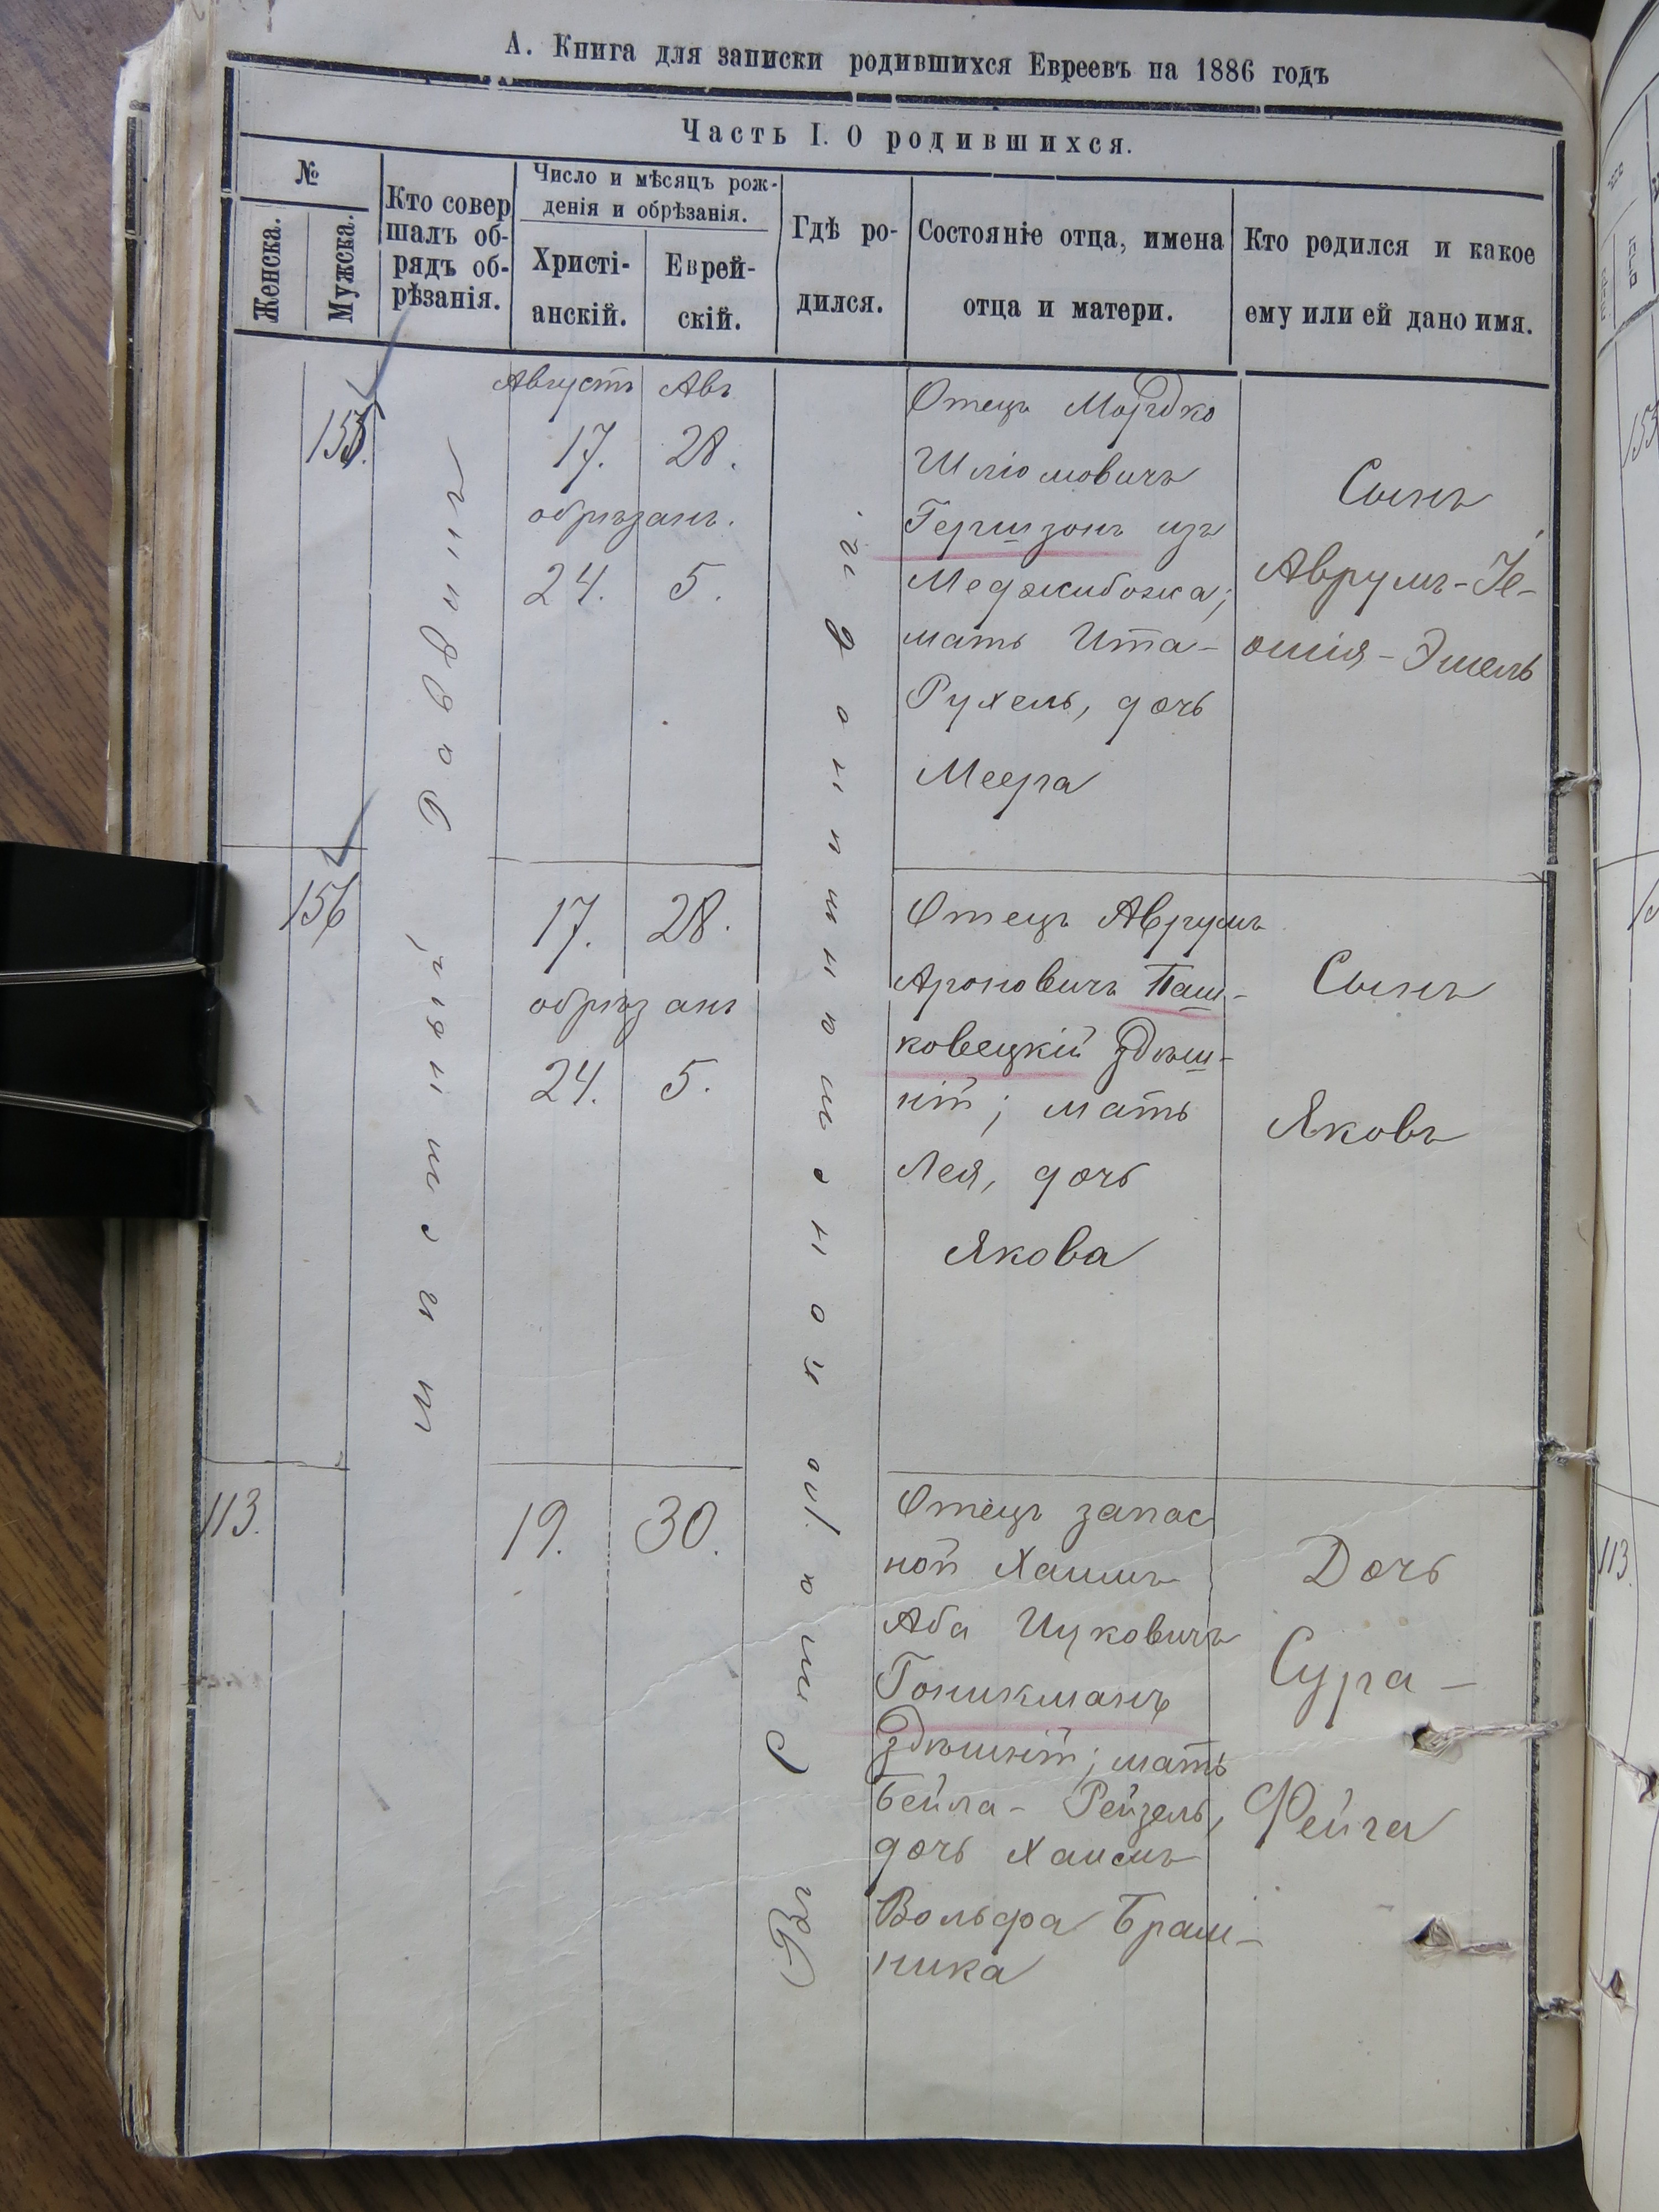 А. Книга для записки родившихся Евреевъ на 1886 годъ
Часть I. О родившихся.
№
Женска.
Мужска.
Кто совер
шалъ об-
рядъ об-
рѣзанія.
Число и мѣсяцъ рож-
денія и обрѣзанія.
Христі-
анскій.
Еврей-
скій.
Гдѣ ро-
дился.
Состояніе отца, имена
отца и матери.
Кто родился и какое
ему или ей дано имя.
155.
Августъ Авъ
17. 28.
обрѣзанъ.
24. 5.
Отецъ Мордко
Шліомовичъ
Гершзонъ изъ
Меджибожа;
мать Ита-
Рухель, дочь
Меера
Сынъ
Аврумъ-Іе-
ошія-Эшель
156
17. 28.
обрѣзанъ
24. 5.
Отецъ Аврумъ
Ароновичъ Паш-
ковецкій здѣш-
ній; мать
Лея, дочь
Якова
Сынъ
Яковъ
113.
19. 30.
Отецъ запас
ной Хаимъ
Аба Ицковичъ
Гоникманъ
здѣшній; мать
Бейла-Рейзель,
дочь Хаимъ
Вольфа Браш-
ника
Дочь
Сура-
Фейга
Въ